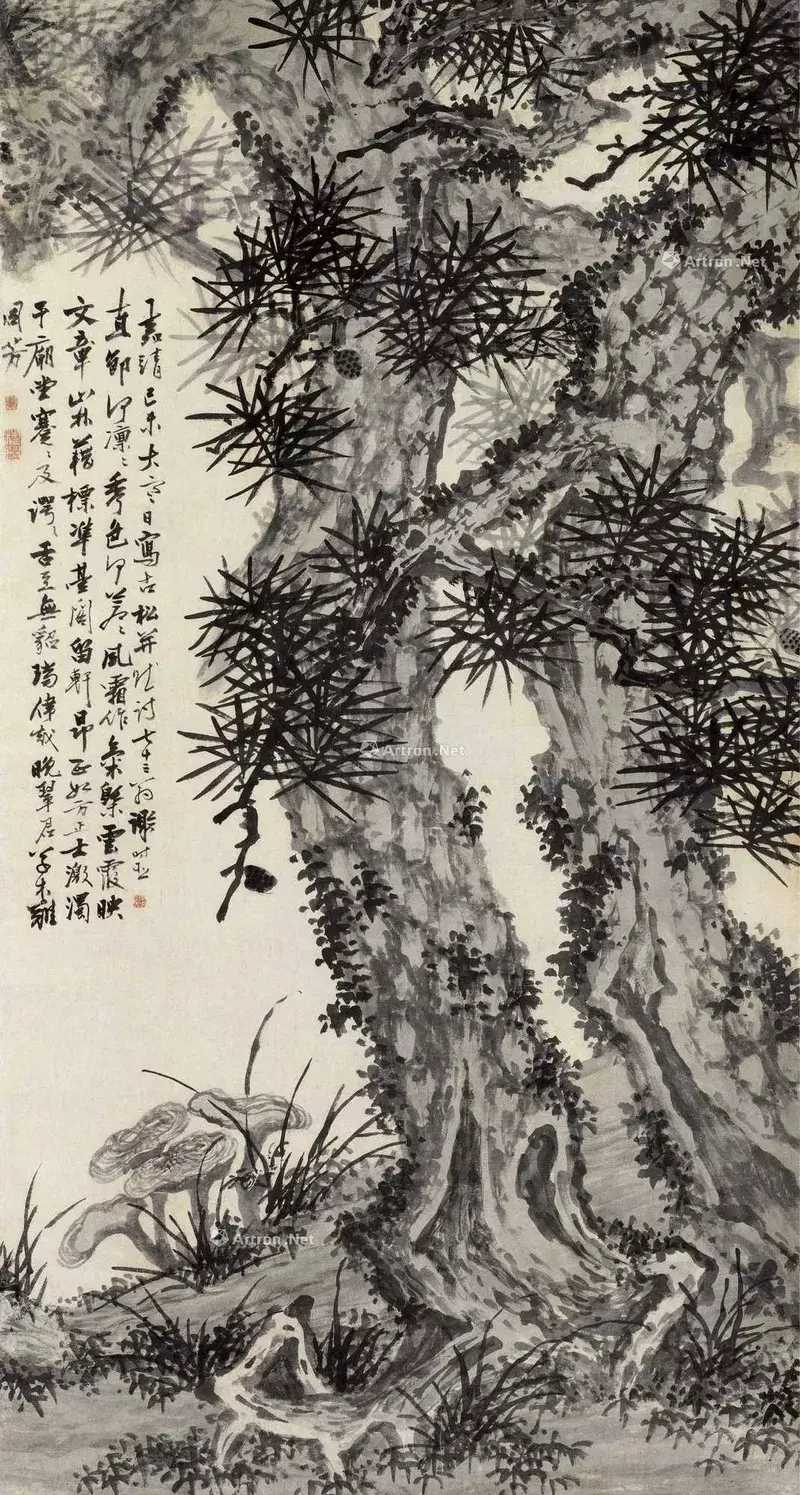 嘉靖己未大寒日寫古松并賦詩七十三翁謝時臣
直節何凜〻秀色何蒼〻風霜作氣槩雲霞映
文章山林藉標準臺閣留軒昂正如方正士激濁
于廟堂蹇〻及諤〻無貂璫偉哉晚翠君草木難
同芳
Artron.Net
Artron.Net
Artron.Net
Artron.Net